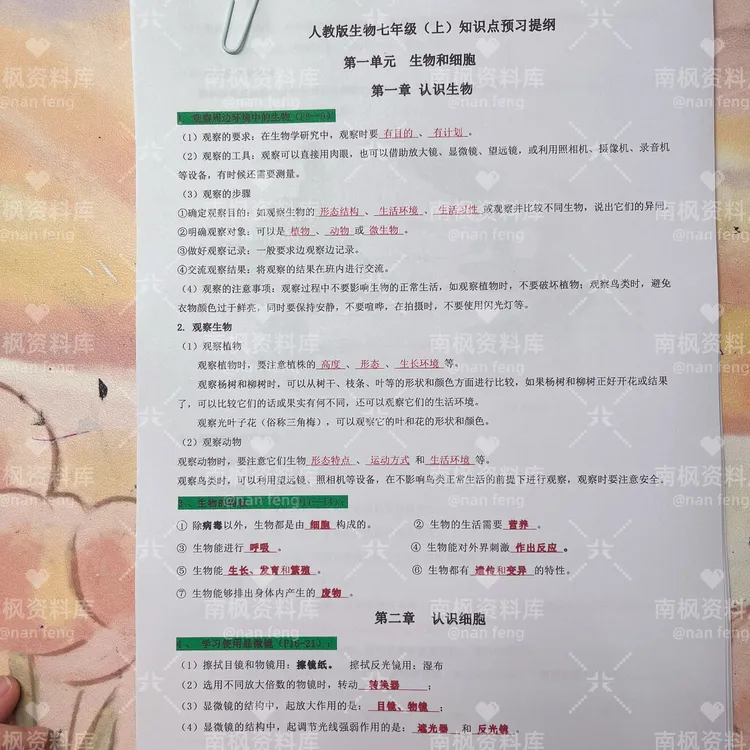 人教版生物七年级（上）知识点预习提纲
第一单元 生物和细胞
第一章 认识生物
1. 观察周边环境中的生物
（1）观察的要求：在生物学研究中，观察时要 有目的 、 有计划 。
（2）观察的工具：观察可以直接用肉眼，也可以借助放大镜、显微镜、望远镜，或利用照相机、摄像机、录音机
等设备，有时候还需要测量。
（3）观察的步骤
①确定观察目的：如观察生物的 形态结构 、 生活环境 、 生活习性 或观察并比较不同生物，说出它们的异同。
②明确观察对象：可以是 植物 、 动物 或 微生物 。
③做好观察记录：一般要求边观察边记录。
④交流观察结果：将观察的结果在班内进行交流。
（4）观察的注意事项：观察过程中不要影响生物的正常生活，如观察植物时，不要破坏植物；观察鸟类时，避免
衣物颜色过于鲜亮，同时要保持安静，不要喧哗，在拍摄时，不要使用闪光灯等。
2. 观察生物
（1）观察植物
观察植物时，要注意植株的 高度 、 形态 、 生长环境 等。
观察杨树和柳树时，可以从树干、枝条、叶等的形状和颜色方面进行比较，如果杨树和柳树正好开花或结果
了，可以比较它们的话或果实有何不同，还可以观察它们的生活环境。
观察光叶子花（俗称三角梅），可以观察它的叶和花的形状和颜色。
（2）观察动物
观察动物时，要注意它们生物 形态特点 、 运动方式 和 生活环境 等。
观察鸟类时，可以利用望远镜、照相机等设备，在不影响鸟类正常生活的前提下进行观察，观察时要注意安全。
3、生物的
① 除病毒以外，生物都是由 细胞 构成的。 ② 生物的生活需要 营养 。
③ 生物能进行 呼吸 。 ④ 生物能对外界刺激 作出反应 。
⑤ 生物能 生长、发育和繁殖 。 ⑥ 生物都有 遗传和变异 的特性。
⑦ 生物能够排出身体内产生的 废物 。
第二章 认识细胞
、 学习使用显微镜（P16-21）：
（1）擦拭目镜和物镜用：擦镜纸。 擦拭反光镜用：湿布
（2）选用不同放大倍数的物镜时，转动 转换器 ；
（3）显微镜的结构中，起放大作用的是： 目镜、物镜 ；
（4）显微镜的结构中，起调节光线强弱作用的是： 遮光器 和 反光镜 。
南枫资料库
@nan feng